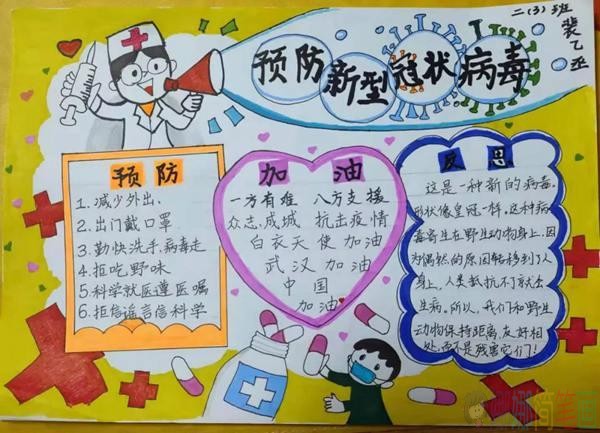 二(3)班
裴乙丞
预防新型冠状病毒
预防
1.减少外出、
2.出门戴口罩
3.勤快洗手,病毒走
4.拒吃野味
5.科学就医遵医嘱
6.拒信谣言信科学
加油
一方有难 八方支援
众志成城 抗击疫情
白衣天使加油
武汉加油
中国
加油
反思
这是一种新的病毒。
形状像皇冠一样。这种病
毒寄生在野生动物身上,因
为偶然的原因转移到了人
身上,人类抵抗不了就会
生病。所以,我们和野生
动物保持距离,友好相
处,而不是残害它们!